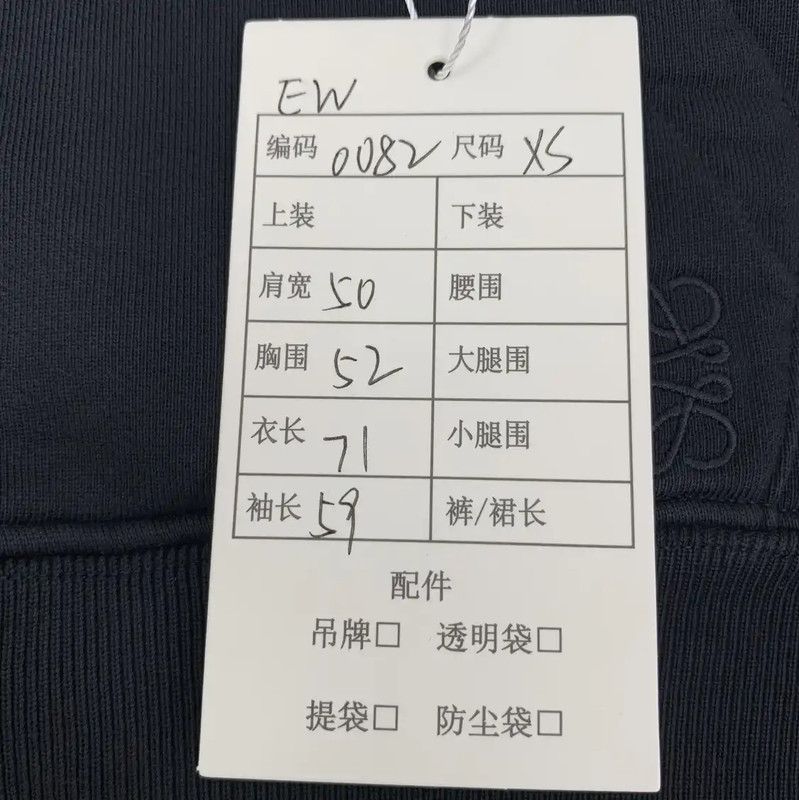 EW
编码 0082 尺码 XS
上装 下装
肩宽 50 腰围
胸围 52 大腿围
衣长 71 小腿围
袖长 59 裤/裙长
配件
吊牌□ 透明袋□
提袋□ 防尘袋□